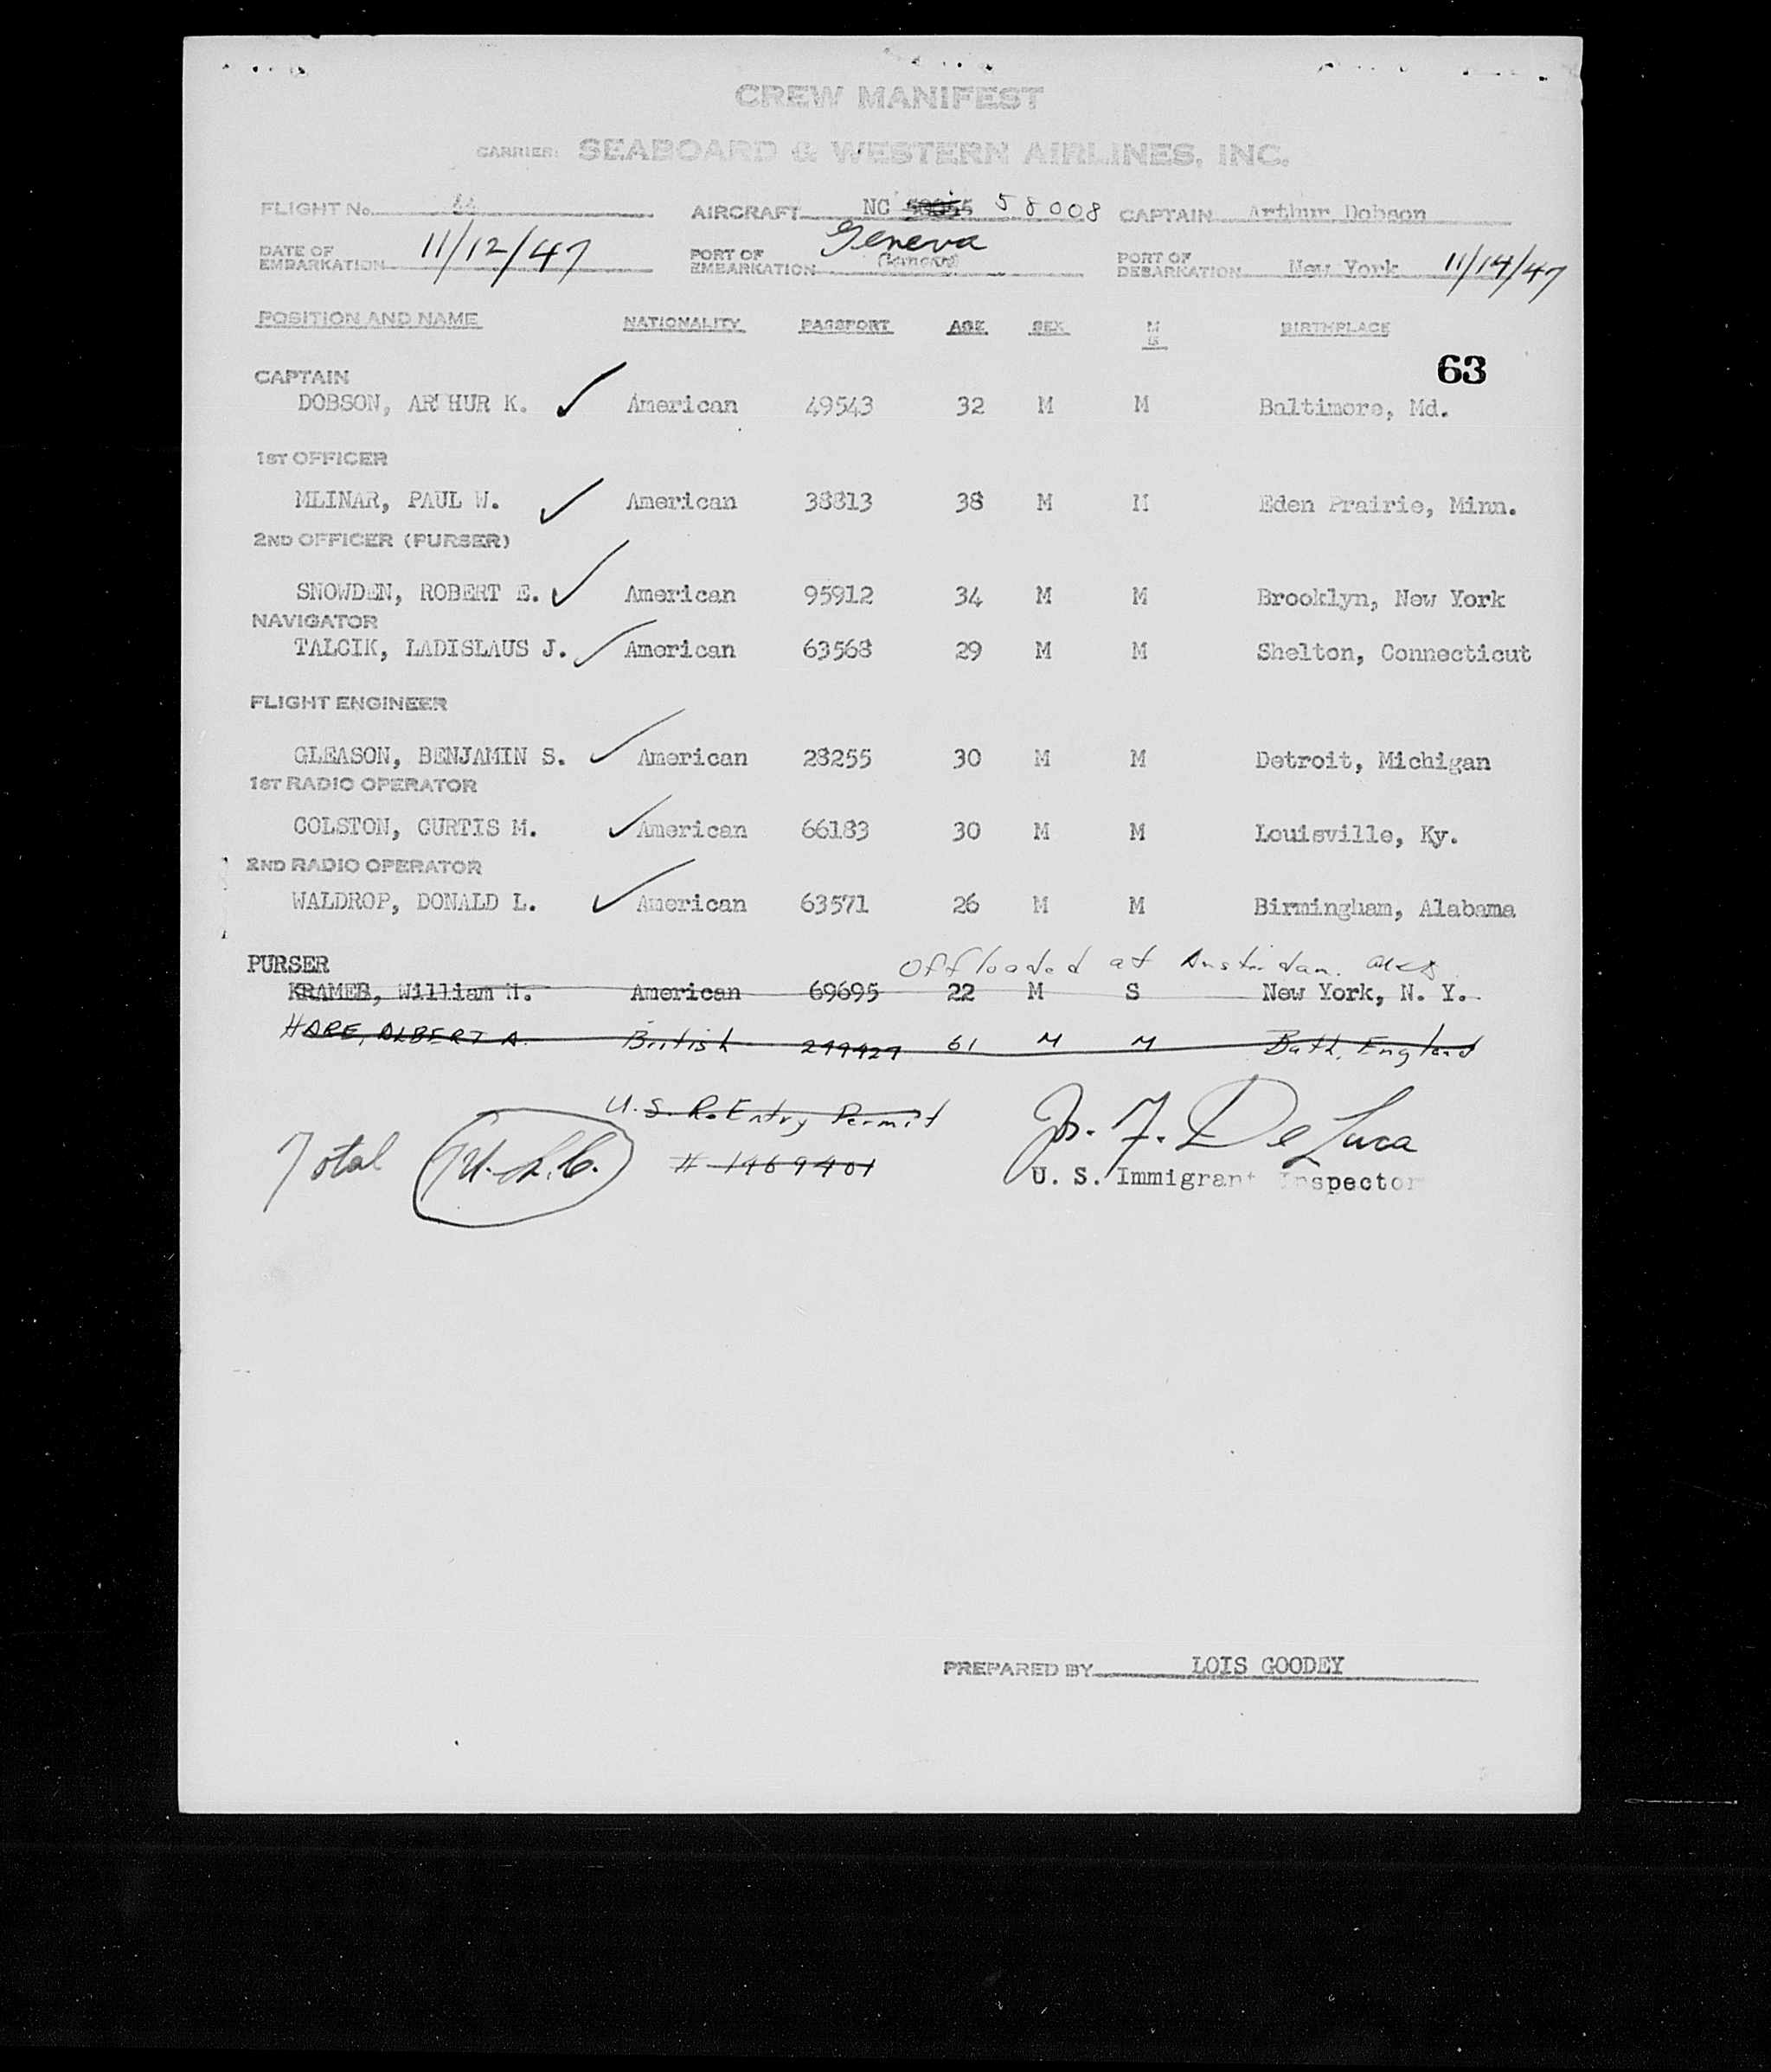 CREW MANIFEST
CARRIER: SEABOARD & WESTERN AIRLINES, INC.
FLIGHT No. AIRCRAFT NC 58008 CAPTAIN Arthur Dobson
DATE OF EMBARKATION 11/12/47 PORT OF EMBARKATION Geneva PORT OF DEBARKATION New York 11/14/47
POSITION AND NAME NATIONALITY PASSPORT AGE SEX M S BIRTHPLACE
63
CAPTAIN
DOBSON, ARTHUR K. American 49543 32 M M Baltimore, Md.
1ST OFFICER
MLINAR, PAUL W. American 38813 38 M M Eden Prairie, Minn.
2ND OFFICER (PURSER)
SNOWDEN, ROBERT E. American 95912 34 M M Brooklyn, New York
NAVIGATOR
TALCIK, LADISLAUS J. American 63568 29 M M Shelton, Connecticut
FLIGHT ENGINEER
GLEASON, BENJAMIN S. American 28255 30 M M Detroit, Michigan
1ST RADIO OPERATOR
COLSTON, CURTIS M. American 66183 30 M M Louisville, Ky.
2ND RADIO OPERATOR
WALDROP, DONALD L. American 63571 26 M M Birmingham, Alabama
PURSER offloaded at Amsterdam.
KRAMER, William H. American 69695 22 M S New York, N. Y.
HARE, ALBERT A. British 61 M M Bath, England
U.S. Re Entry Permit
Total # 1469401
Jo. F. De Luca
U. S. Immigrant Inspector
PREPARED BY LOIS GOODEY